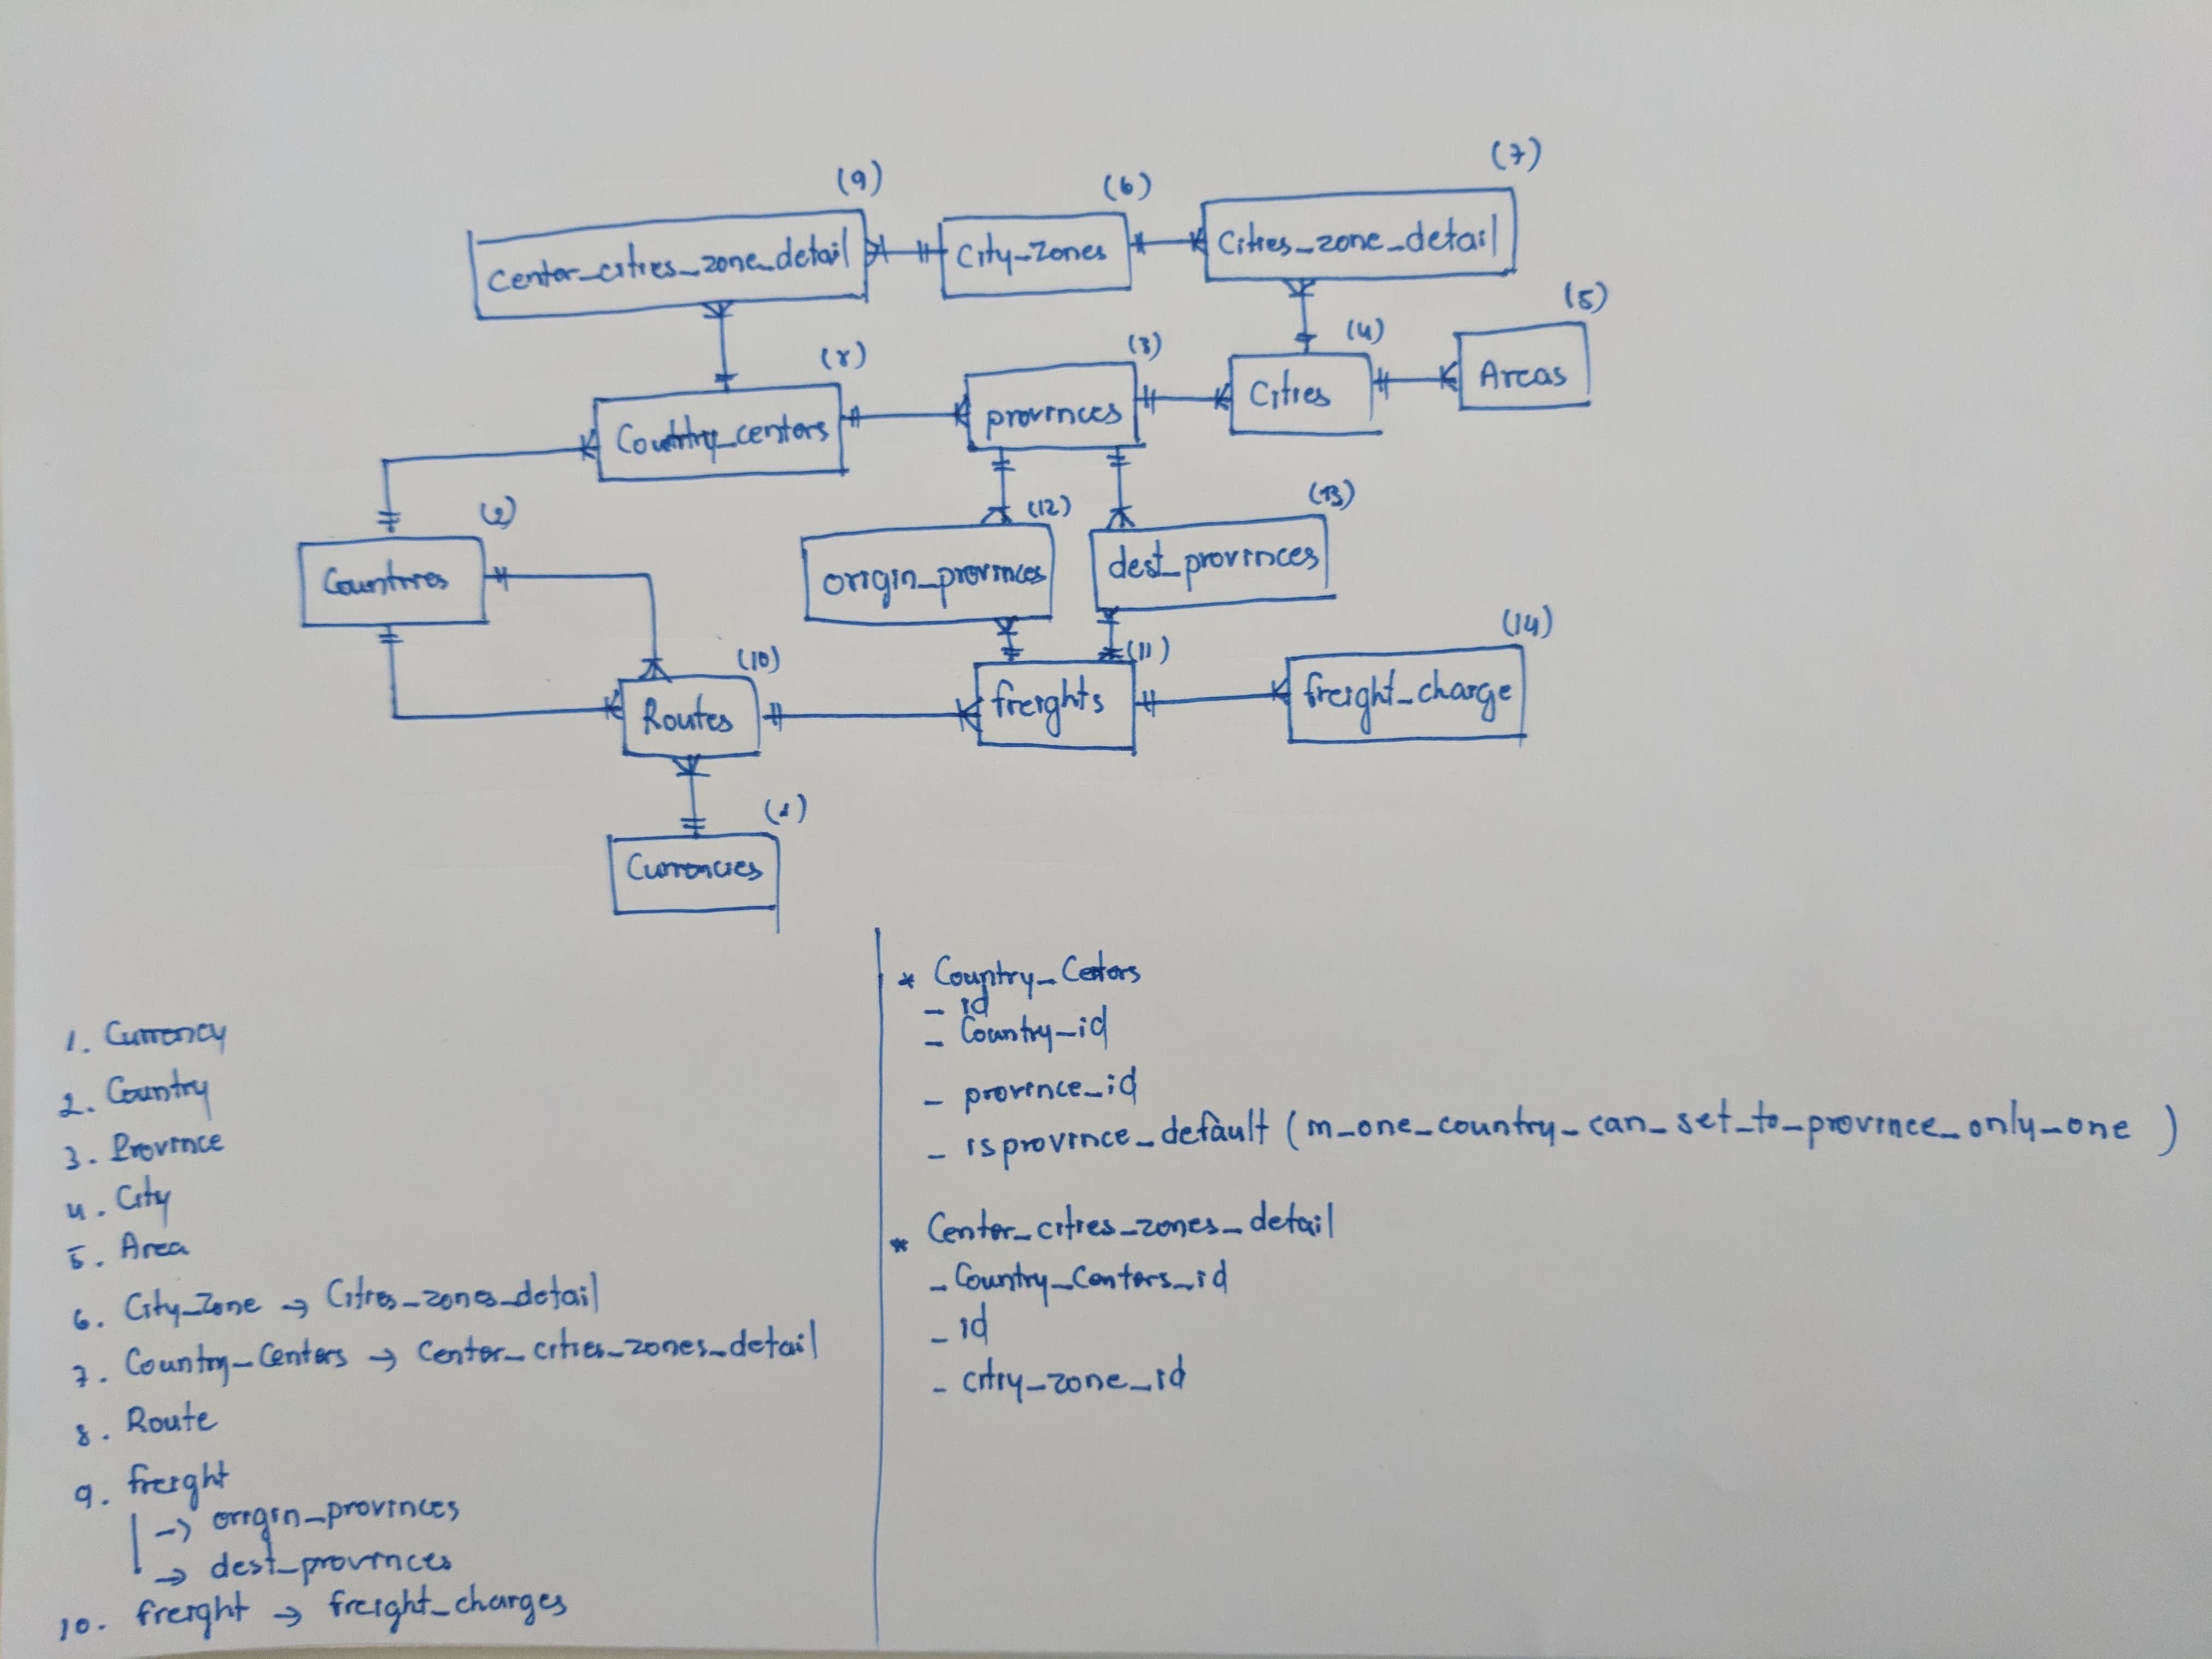 (7)
(9)
(6)
Center_cities_zone_detail
City_Zones
Cities_zone_detail
(5)
(8)
(3)
(4)
Country_centers
provinces
Cities
Areas
(2)
(12)
(13)
Countries
origin_provinces
dest_provinces
(10)
(11)
(14)
Routes
freights
freight_charge
(1)
Currencies
1. Currency
2. Country
3. Province
4. City
5. Area
6. City_Zone → Cities_zones_detail
7. Country_Centers → Center_cities_zones_detail
8. Route
9. freight
→ origin_provinces
→ dest_provinces
10. freight → freight_charges
* Country_Centers
- id
- Country_id
- province_id
- is province_default (in_one_country_can_set_to_province_only_one )
* Center_cities_zones_detail
- Country_Centers_id
- id
- citiy_zone_id